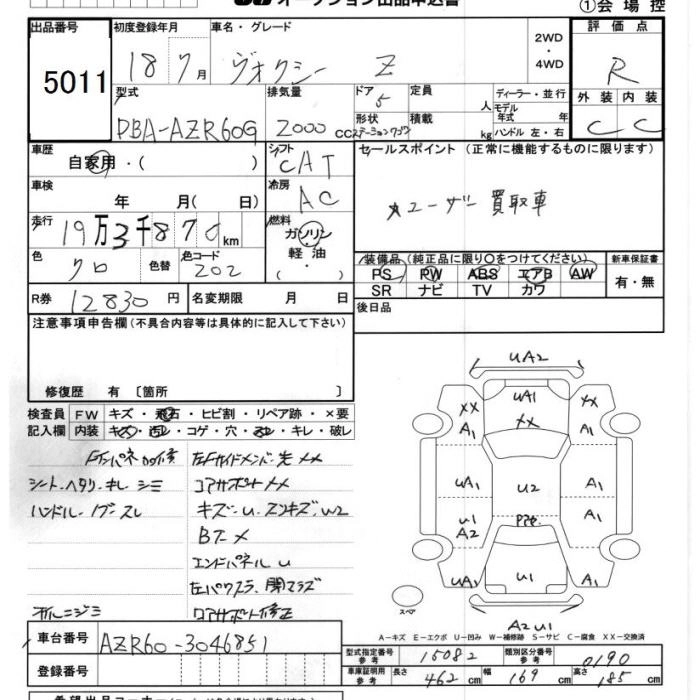 オークション出品申込書
①会場控
出品番号
5011
初度登録年月
18 7月
車名・グレード
ヴォクシー Z
2WD
・
4WD
評価点
R
型式
DBA-AZR60G
排気量
2000cc
ドア
5
形状
ステーションワゴン
定員
人
積載
kg
ディーラー・並行
モデル年式
年
ハンドル 左・右
外装 内装
C C
車歴
自家用・( )
シフト
CAT
車検
年 月( 日)
冷房
AC
走行
19万3千870km
燃料
ガソリン
軽油
・
色
クロ
色替
色コード
202
R券
12830円
名変期限 月 日
セールスポイント (正常に機能するものに限ります)
ユーザー買取車
装備品(純正品に限り○をつけてください)
PS PW ABS エアB AW
SR ナビ TV カワ
新車保証書
有・無
後日品
注意事項申告欄(不具合内容等は具体的に記入して下さい)
修復歴 有 〔箇所 〕
検査員
記入欄
FW キズ・飛石・ヒビ割・リペア跡・×要
内装 キズ・汚レ・コゲ・穴・スレ・キレ・破レ
Fインパネ加修
シート・ヘタリ・キレ シミ
ハンドル・ノブ・スレ
左Fサイドメンバー先 メメ
コアサポート メメ
キズ・U・スンキズ、W2
BTメ
エンドパネル U
左パワスラ、開マラズ
コアサポート修正
UA2
UA1
XX
XX
XX
A1
A1
UA1
U2
A1
U1
A2
A1
UA1
U1
A1
A2 U1
スペア
A－キズ E－エクボ U－凹み W－補修跡 S－サビ C－腐食 XX－交換済
車台番号
AZR60-3046851
登録番号
型式指定番号
参考
15082
類別区分番号
参考
0190
車庫証明用
参考
長さ
462cm
幅
169cm
高さ
185cm